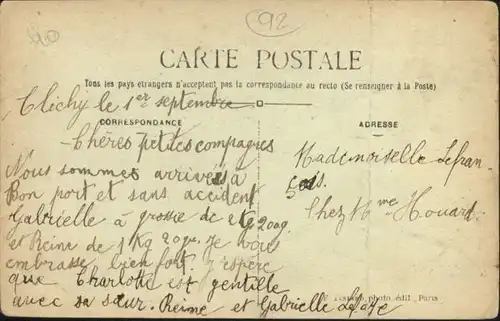 40
92
CARTE POSTALE
Tous les pays étrangers n'acceptent pas la correspondance au recto (Se renseigner à la Poste)
Clichy le 1er septembre
CORRESPONDANCE
ADRESSE
Chères petites compagnes
Nous sommes arrivées à
Bon port et sans accident
Gabrielle à grossie de 2 Kg 200g
et Reine de 1 Kg 20 gr. Je vous
embrasse bien fort. J'espère
que Charlotte est gentille
avec sa sœur. Reine et Gabrielle
Mademoiselle Lefran
Chez Mme Houard
photo. édit., Paris